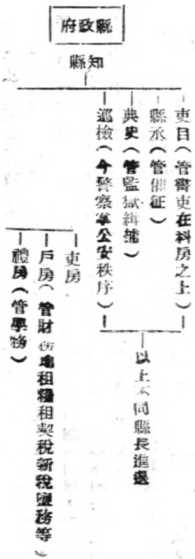 縣政府
知縣
吏目（管書吏在科房之上）
縣丞（管催征）
典史（管監獄緝捕）
巡檢（今警察掌公安秩序）
以上不同縣長進退
吏房
戶房（管財務地租糧租契稅新稅鹽務等）
禮房（管學務）